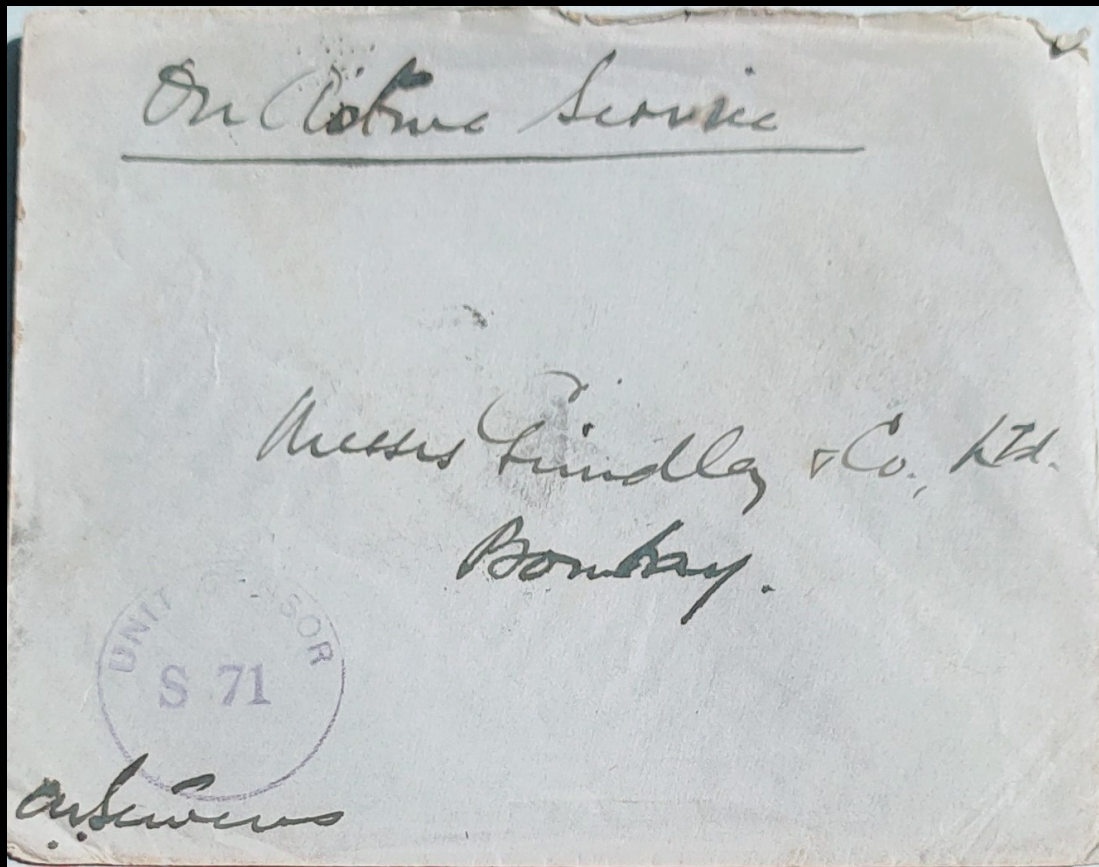 On Active Service
Messrs Grindlay & Co., Ltd.
Bombay.
UNIT CENSOR
S 71